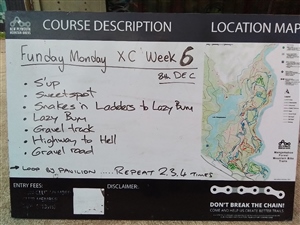 COURSE DESCRIPTION
LOCATION MAP
Funday Monday XC Week 6
8th DEC
• S'up
• Sweetspot
• Snakes n Ladders to Lazy Bum
• Lazy Bum
• Gravel track
• Highway to Hell
• Gravel road
→ Loop By PAVILION ..... REPEAT 2 3 4 TIMES
ENTRY FEES:
DISCLAIMER:
DON'T BREAK THE CHAIN!
COME AND HELP US CREATE BETTER TRAILS